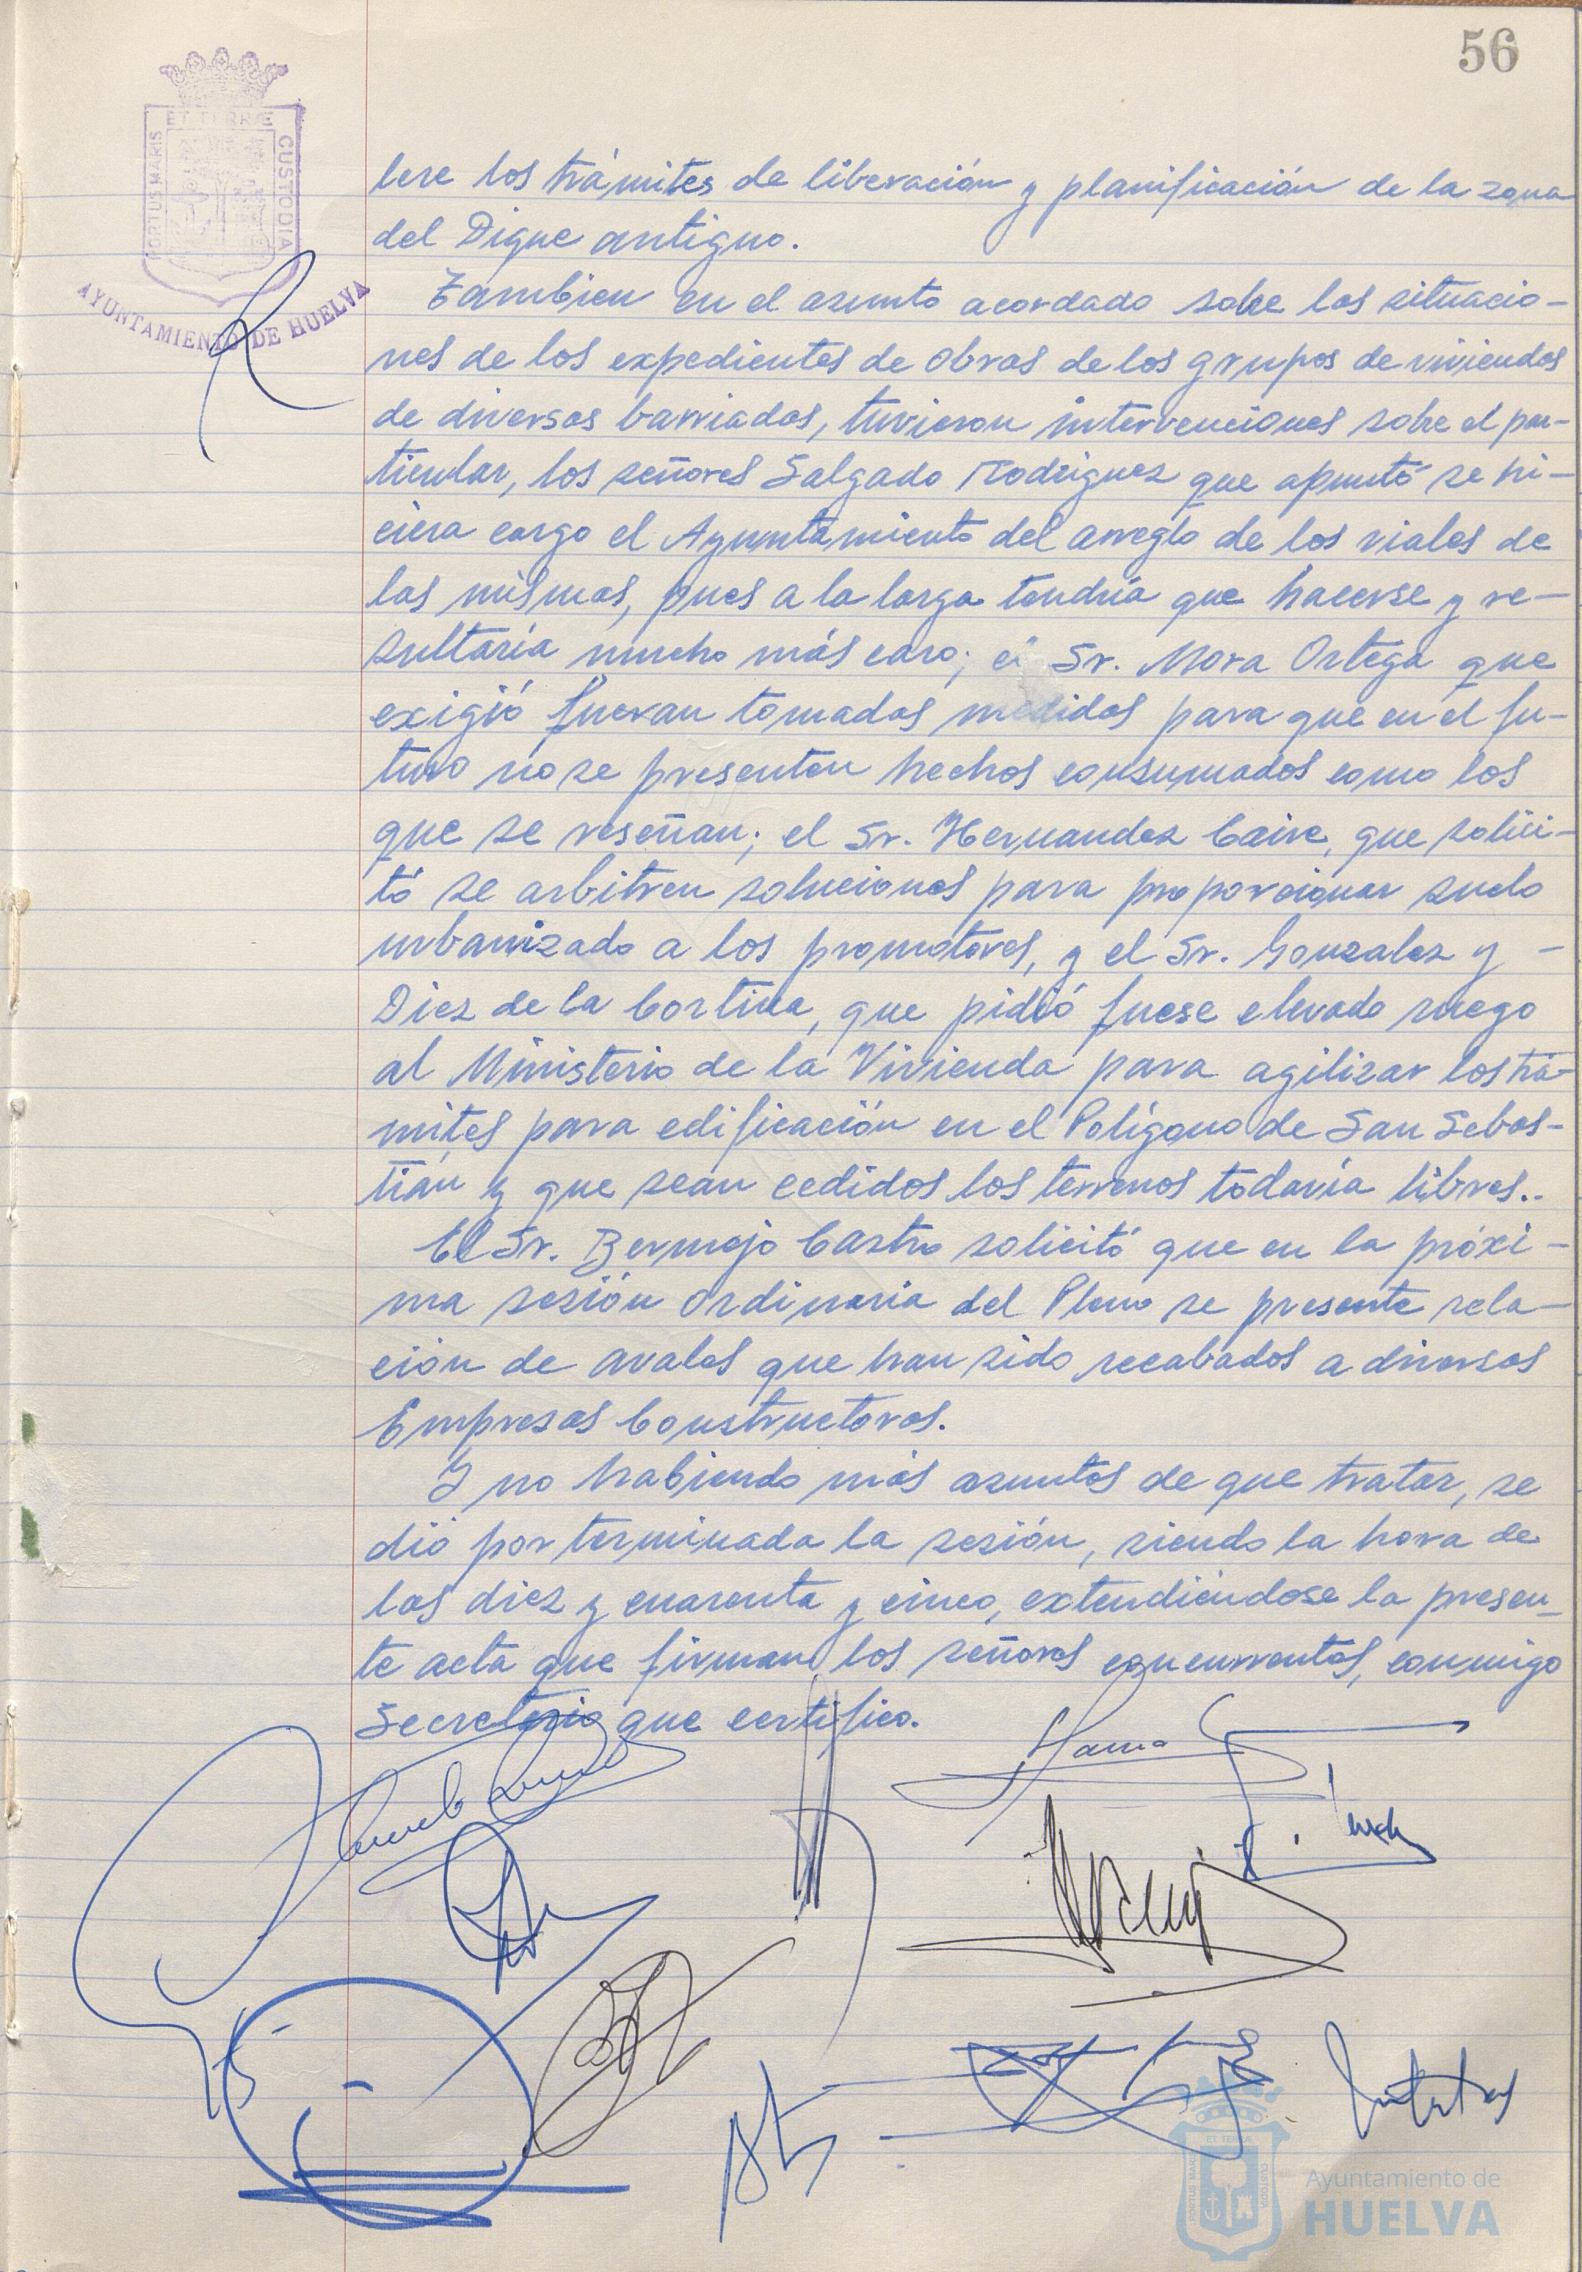 56
ET TERRÆ
PORTUS MARIS
CUSTODIA
AYUNTAMIENTO DE HUELVA
lere los trámites de liberación y planificación de la zona
del Dique antiguo.
Tambien en el asunto acordado sobre las situacio-
nes de los expedientes de obras de los grupos de viviendas
de diversas barriadas, tuvieron intervenciones sobre el par-
ticular, los señores Salgado Rodriguez que apuntó se hi-
ciera cargo el Ayuntamiento del arreglo de los viales de
las mismas, pues a la larga tendría que hacerse y re-
sultaría mucho más caro; el Sr. Mora Ortega que
exigió fueran tomadas medidas para que en el fu-
turo no se presenten hechos consumados como los
que se reseñan; el Sr. Hernandez Caire, que solici-
tó se arbitren soluciones para proporcionar suelo
urbanizado a los promotores, y el Sr. Gonzalez y -
Diez de la Cortina, que pidió fuese elevado ruego
al Ministerio de la Vivienda para agilizar los trá-
mites para edificación en el Polígono de San Sebas-
tián y que sean cedidos los terrenos todavía libres..
El Sr. Bermejo Castro solicitó que en la próxi-
ma sesión ordinaria del Pleno se presente rela-
ción de avales que han sido recabados a diversas
Empresas Constructoras.
Y no habiendo más asuntos de que tratar, se
dió por terminada la sesión, siendo la hora de
las diez y cuarenta y cinco, extendiéndose la presen-
te acta que firman los señores concurrentes, conmigo
Secretario que certifico.
ET TERRÆ
PORTUS MARIS
CUSTODIA
Ayuntamiento de
HUELVA